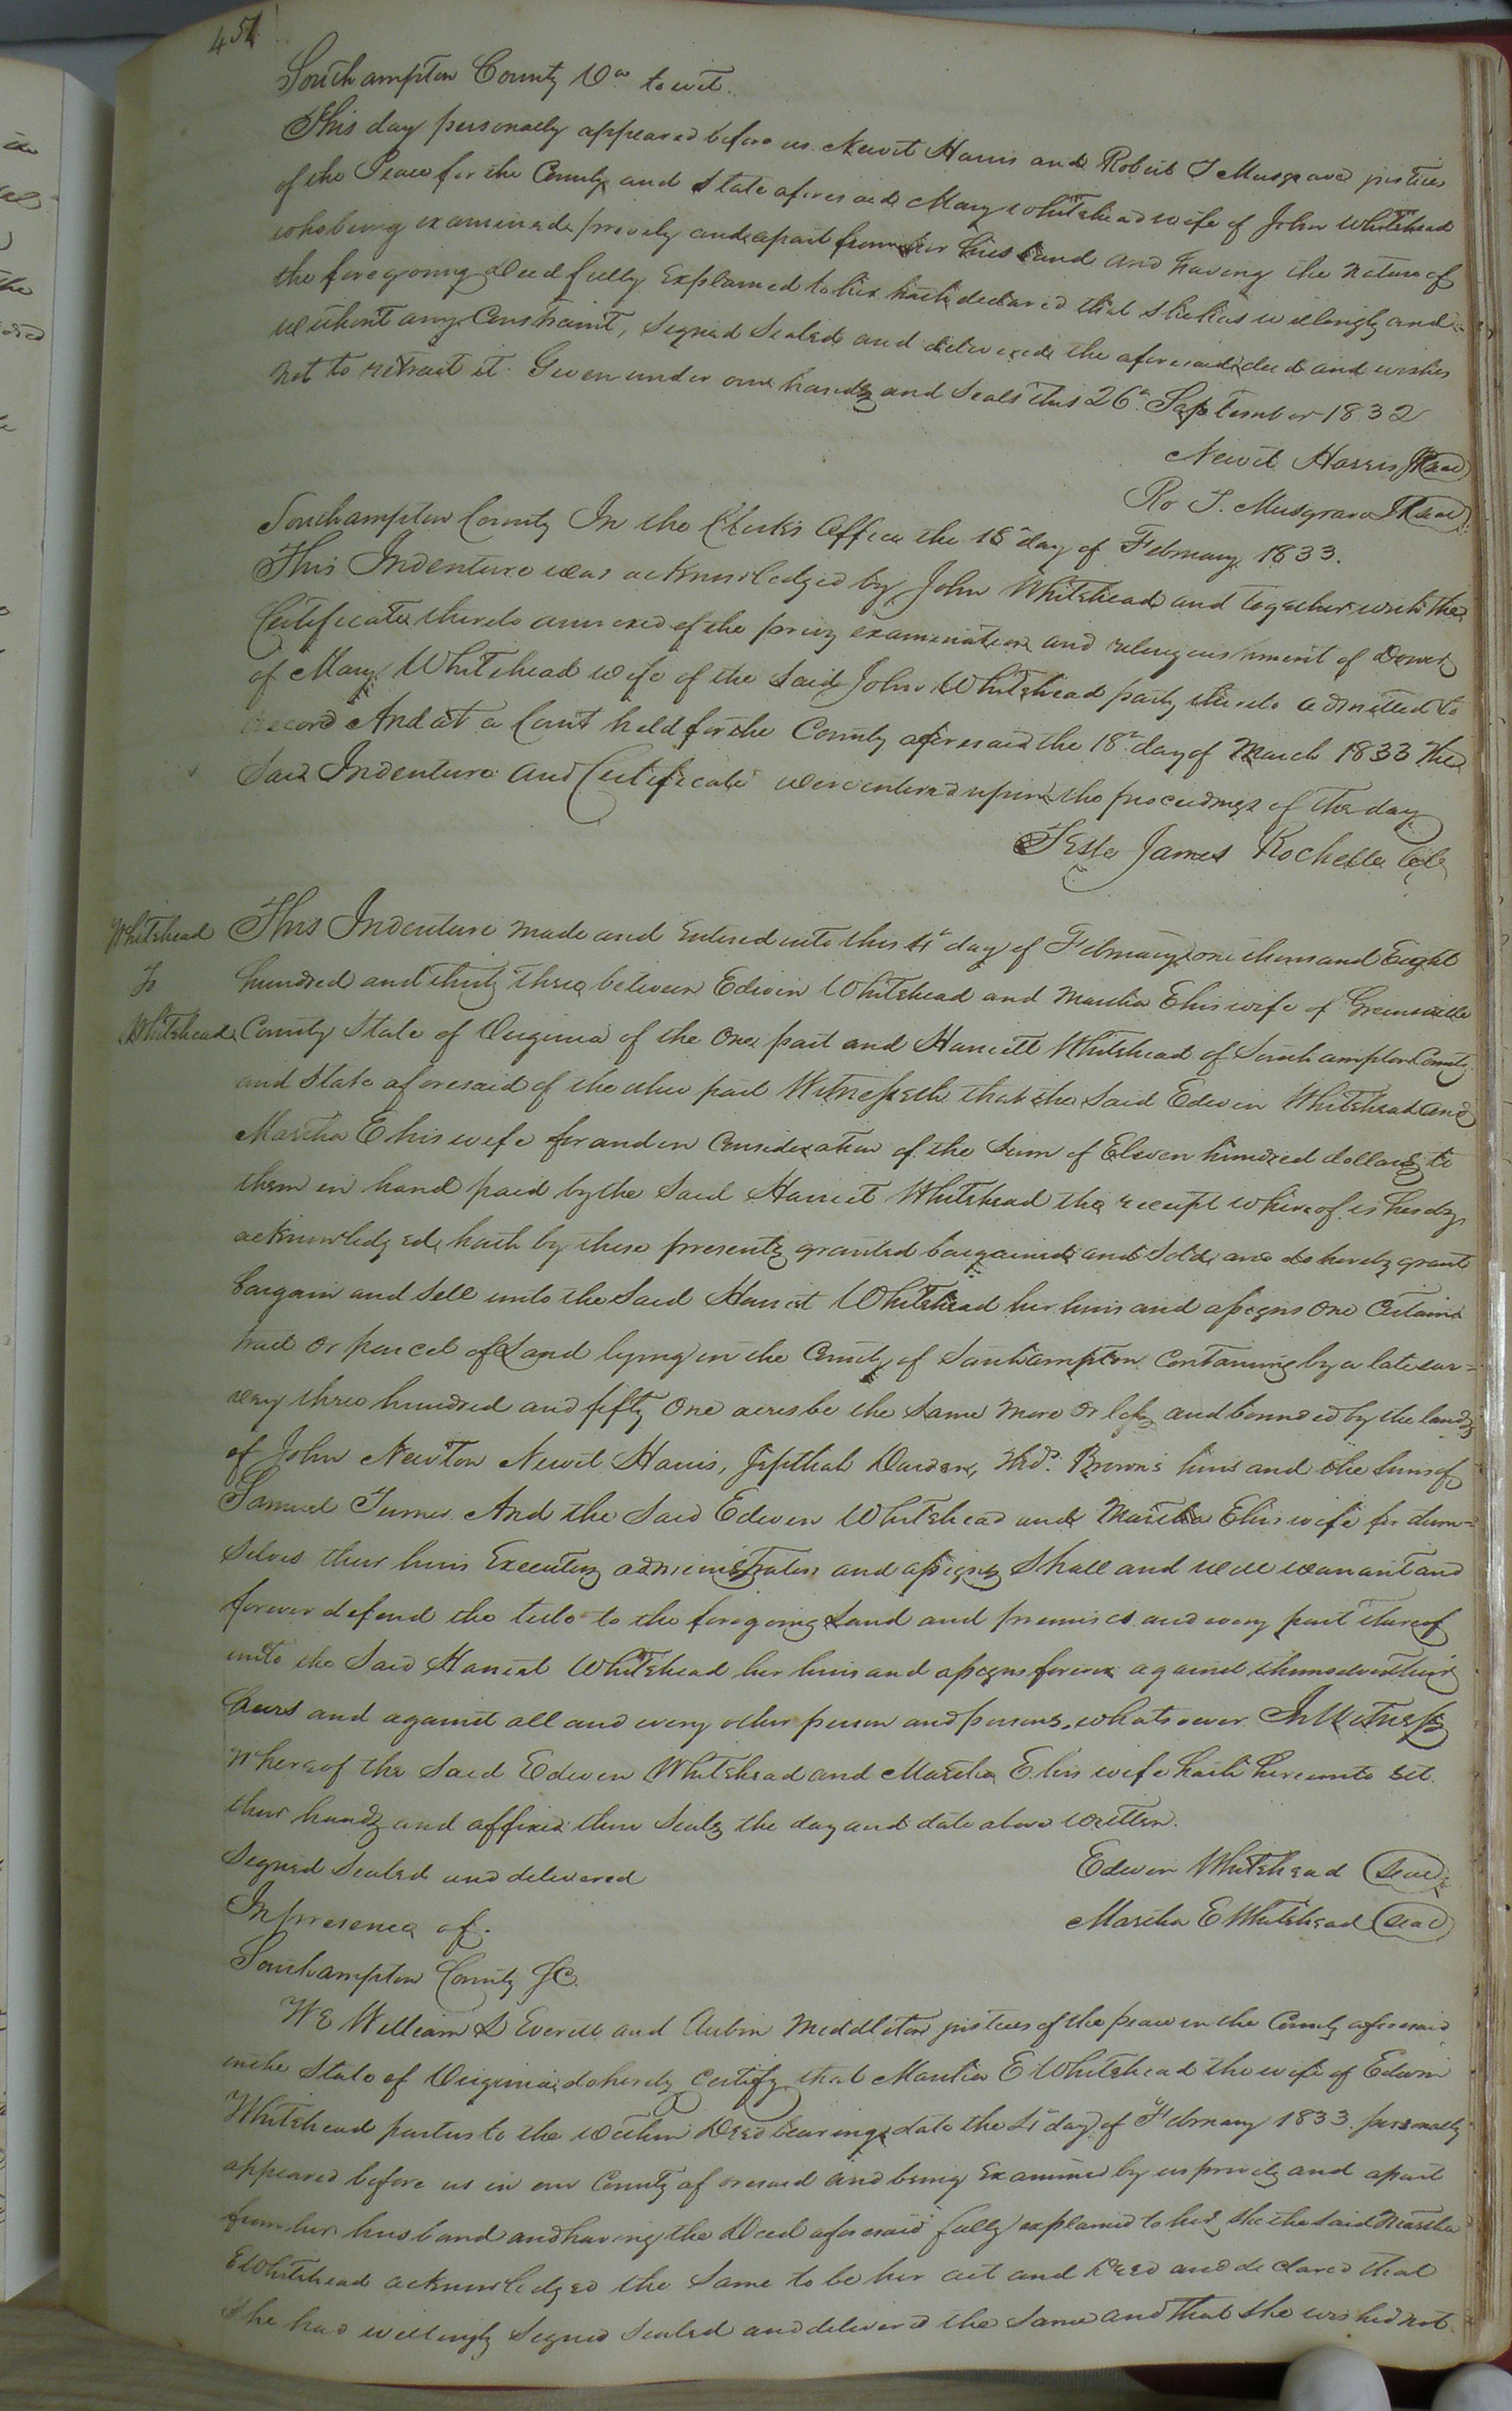 451
Southampton County Va to wit.
This day personally appeared before us Newit Harris and Robert T Musgrave justices
of the Peace for the County and State aforesaid Mary Whitehead wife of John Whitehead
who being examined privily and apart from her husband and having the nature of
the foregoing Deed fully Explained to her hath declared that she has willingly and
without any Constraint, Signed Sealed and delivered the aforesaid deed and wishes
not to retract it. Given under our hands and Seals this 26th September 1832
Newit Harris JP Seal
Ro T. Musgrave JP Seal
Southampton County In the Clerk's Office the 18th day of February 1833.
This Indenture was acknowledged by John Whitehead and together with the
Certificate thereto annexed of the privy examination and relinquishment of Dower
of Mary Whitehead wife of the said John Whitehead party thereto admitted to
record And at a Court held for the County aforesaid the 18th day of March 1833 The
Said Indenture and Certificate were entered upon the proceedings of the day
Teste James Rochelle Clk
Whitehead
To
Whitehead
This Indenture made and Entered into this 4th day of February one thousand Eight
hundred and thirty three between Edwin Whitehead and Martha E his wife of Greensville
County State of Virginia of the One part and Harriett Whitehead of Southampton County
and State aforesaid of the other part Witnesseth that the Said Edwin Whitehead and
Martha E his wife for and in Consideration of the Sum of Eleven hundred dollars to
them in hand paid by the Said Harriet Whitehead the receipt whereof is hereby
acknowledged, hath by these presents granted bargained and Sold, and do hereby grant
bargain and Sell unto the Said Harriet Whitehead her heirs and assigns One Certain
tract or parcel of Land lying in the County of Southampton Containing by a late sur=
vey three hundred and fifty One acres be the Same More or less and bounded by the lands
of John Newton Newit Harris, Jepthah Darden, Wid. Brown's heirs and the heirs of
Samuel Turner And the Said Edwin Whitehead and Martha E his wife for them=
selves their heirs Executors administrators and assigns Shall and will warrant and
forever defend the title to the foregoing Land and premises and every part thereof
unto the Said Harriet Whitehead her heirs and assigns forever against themselves their
heirs and against all and every other person and persons whatsoever In Witness
Whereof the Said Edwin Whitehead and Martha E his wife hath hereunto set
their hands and affixed their Seals the day and date above Written.
Signed Sealed and delivered
In presence of.
Edwin Whitehead Seal
Martha E Whitehead Seal
Southampton County SC.
We William D Everett and Aubin Middleton justices of the peace in the County aforesaid
in the State of Virginia do hereby Certify that Martha E Whitehead the wife of Edwin
Whitehead parties to the within Deed bearing date the 4th day of February 1833 personally
appeared before us in our County aforesaid and being Examined by us privily and apart
from her husband and having the Deed aforesaid fully explained to her, She the Said Martha
E Whitehead acknowledged the Same to be her act and Deed and declared that
She had willingly Signed Sealed and delivered the Same and that She wished not